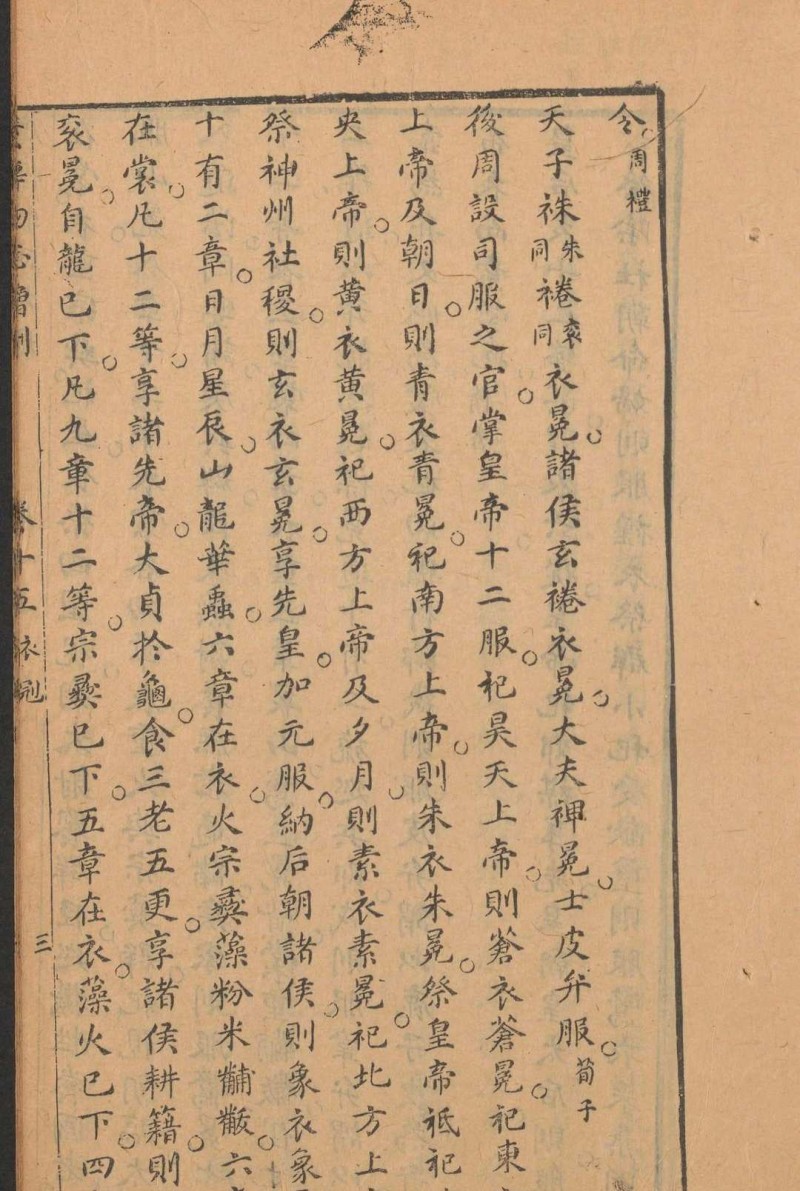 令周禮
天子袾朱同裷衮同衣冕諸侯玄裷衣冕大夫裨冕士皮弁服荀子
後周設司服之官掌皇帝十二服祀昊天上帝則蒼衣蒼冕祀東
上帝及朝日則青衣青冕祀南方上帝則朱衣朱冕祭皇帝祗祀
央上帝則黄衣黄冕祀西方上帝及夕月則素衣素冕祀北方上
祭神州社稷則玄衣玄冕享先皇加元服納后朝諸侯則象衣象
十有二章日月星辰山龍華蟲六章在衣火宗彝藻粉米黼黻六
在裳凡十二等享諸先帝大貞於龜食三老五更享諸侯耕籍則
衮冕自龍已下凡九章十二等宗彝已下五章在衣藻火已下四
卷十五 三